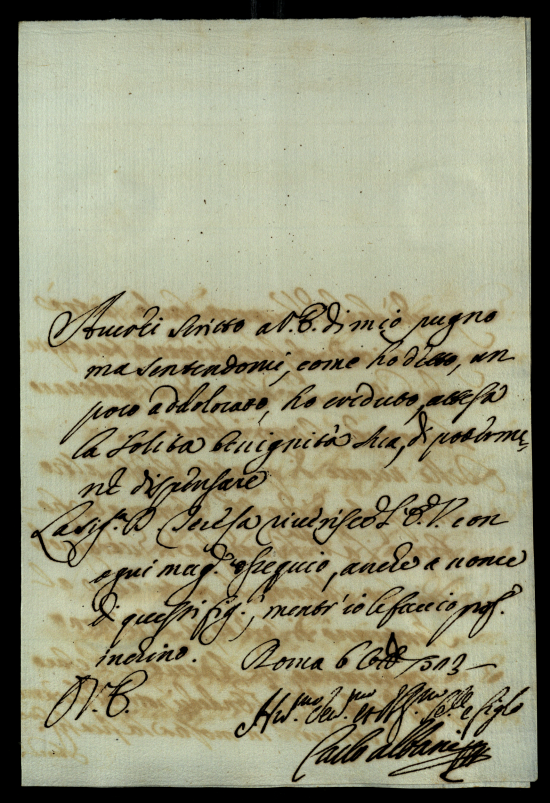 Avrei scritto a V. E. di mio pugno
ma sentendomi, come ho detto, un
poco addolorato, ho creduto, attesa
la solita benignità sua, di poterme,
ne dispensare
La Sig.ra D. Teresa riverisce l'E. V. con
ogni mag.e ossequio, anche a nome
di questi fig.i, mentr' io le faccio prof.
inchino. Roma 6
V. E.
Carlo Albani